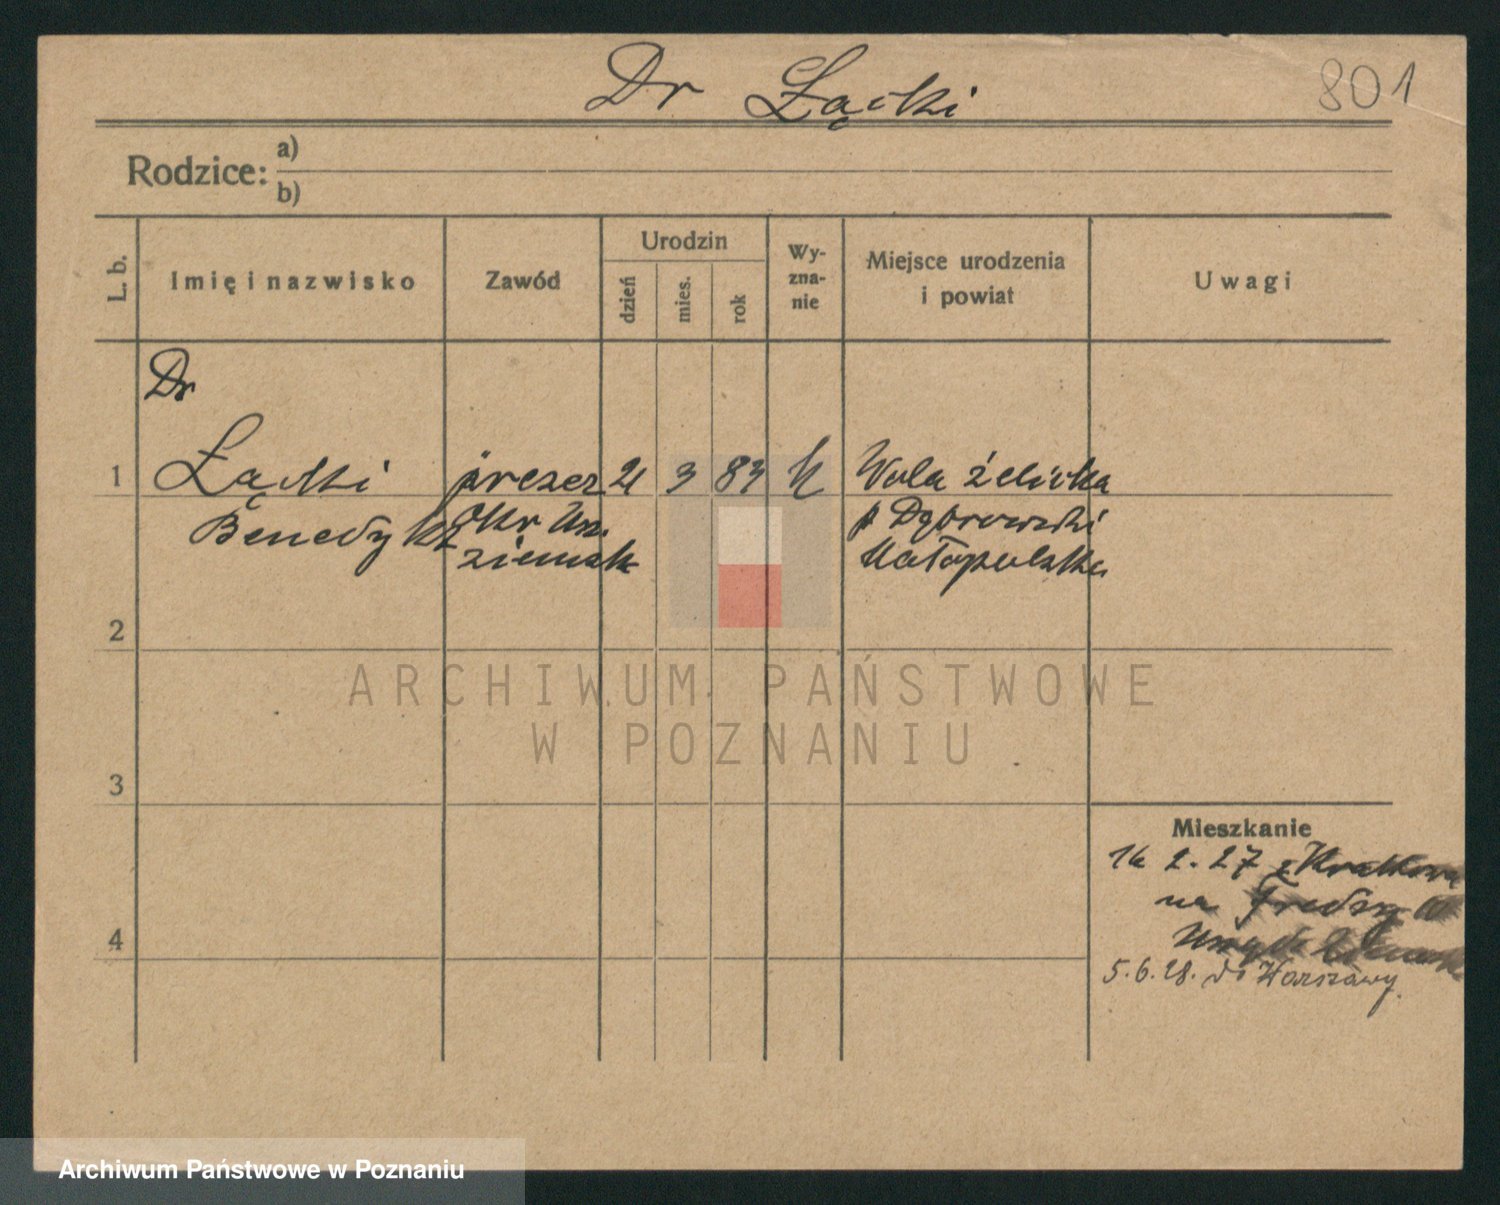 Dr Łącki
801
Rodzice: a)
b)
L. b.
Imię i nazwisko
Zawód
Urodzin
dzień
mies.
rok
Wy-
zna-
nie
Miejsce urodzenia
i powiat
Uwagi
Dr
1 Łącki prezes 21 3 83 k Wola żelicka
Benedykt Okr Urz. p Dąbrowski
ziemsk Małopolska
2
3
4
Mieszkanie
16 2. 27 z Krakowa
na Fredry
5.6.28. do Warszawy.
ARCHIWUM PAŃSTWOWE
W POZNANIU
Archiwum Państwowe w Poznaniu